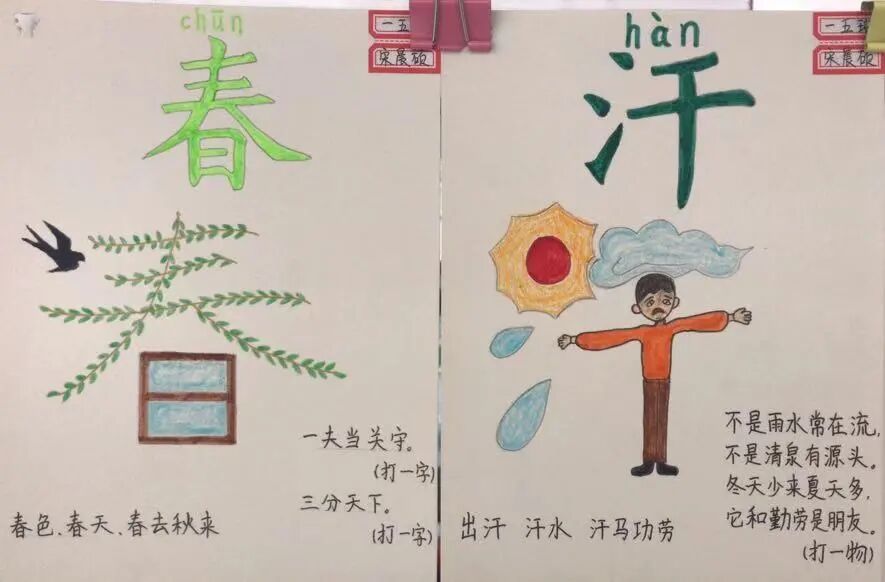 chūn
春
一五
宋晨硕
一夫当关
(打一字)
三分天下。
(打一字)
春色、春天、春去秋来
hàn
汗
一五班
宋晨硕
不是雨水常在流,
不是清泉有源头。
冬天少来夏天多,
它和勤劳是朋友。
(打一物)
出汗 汗水 汗马功劳